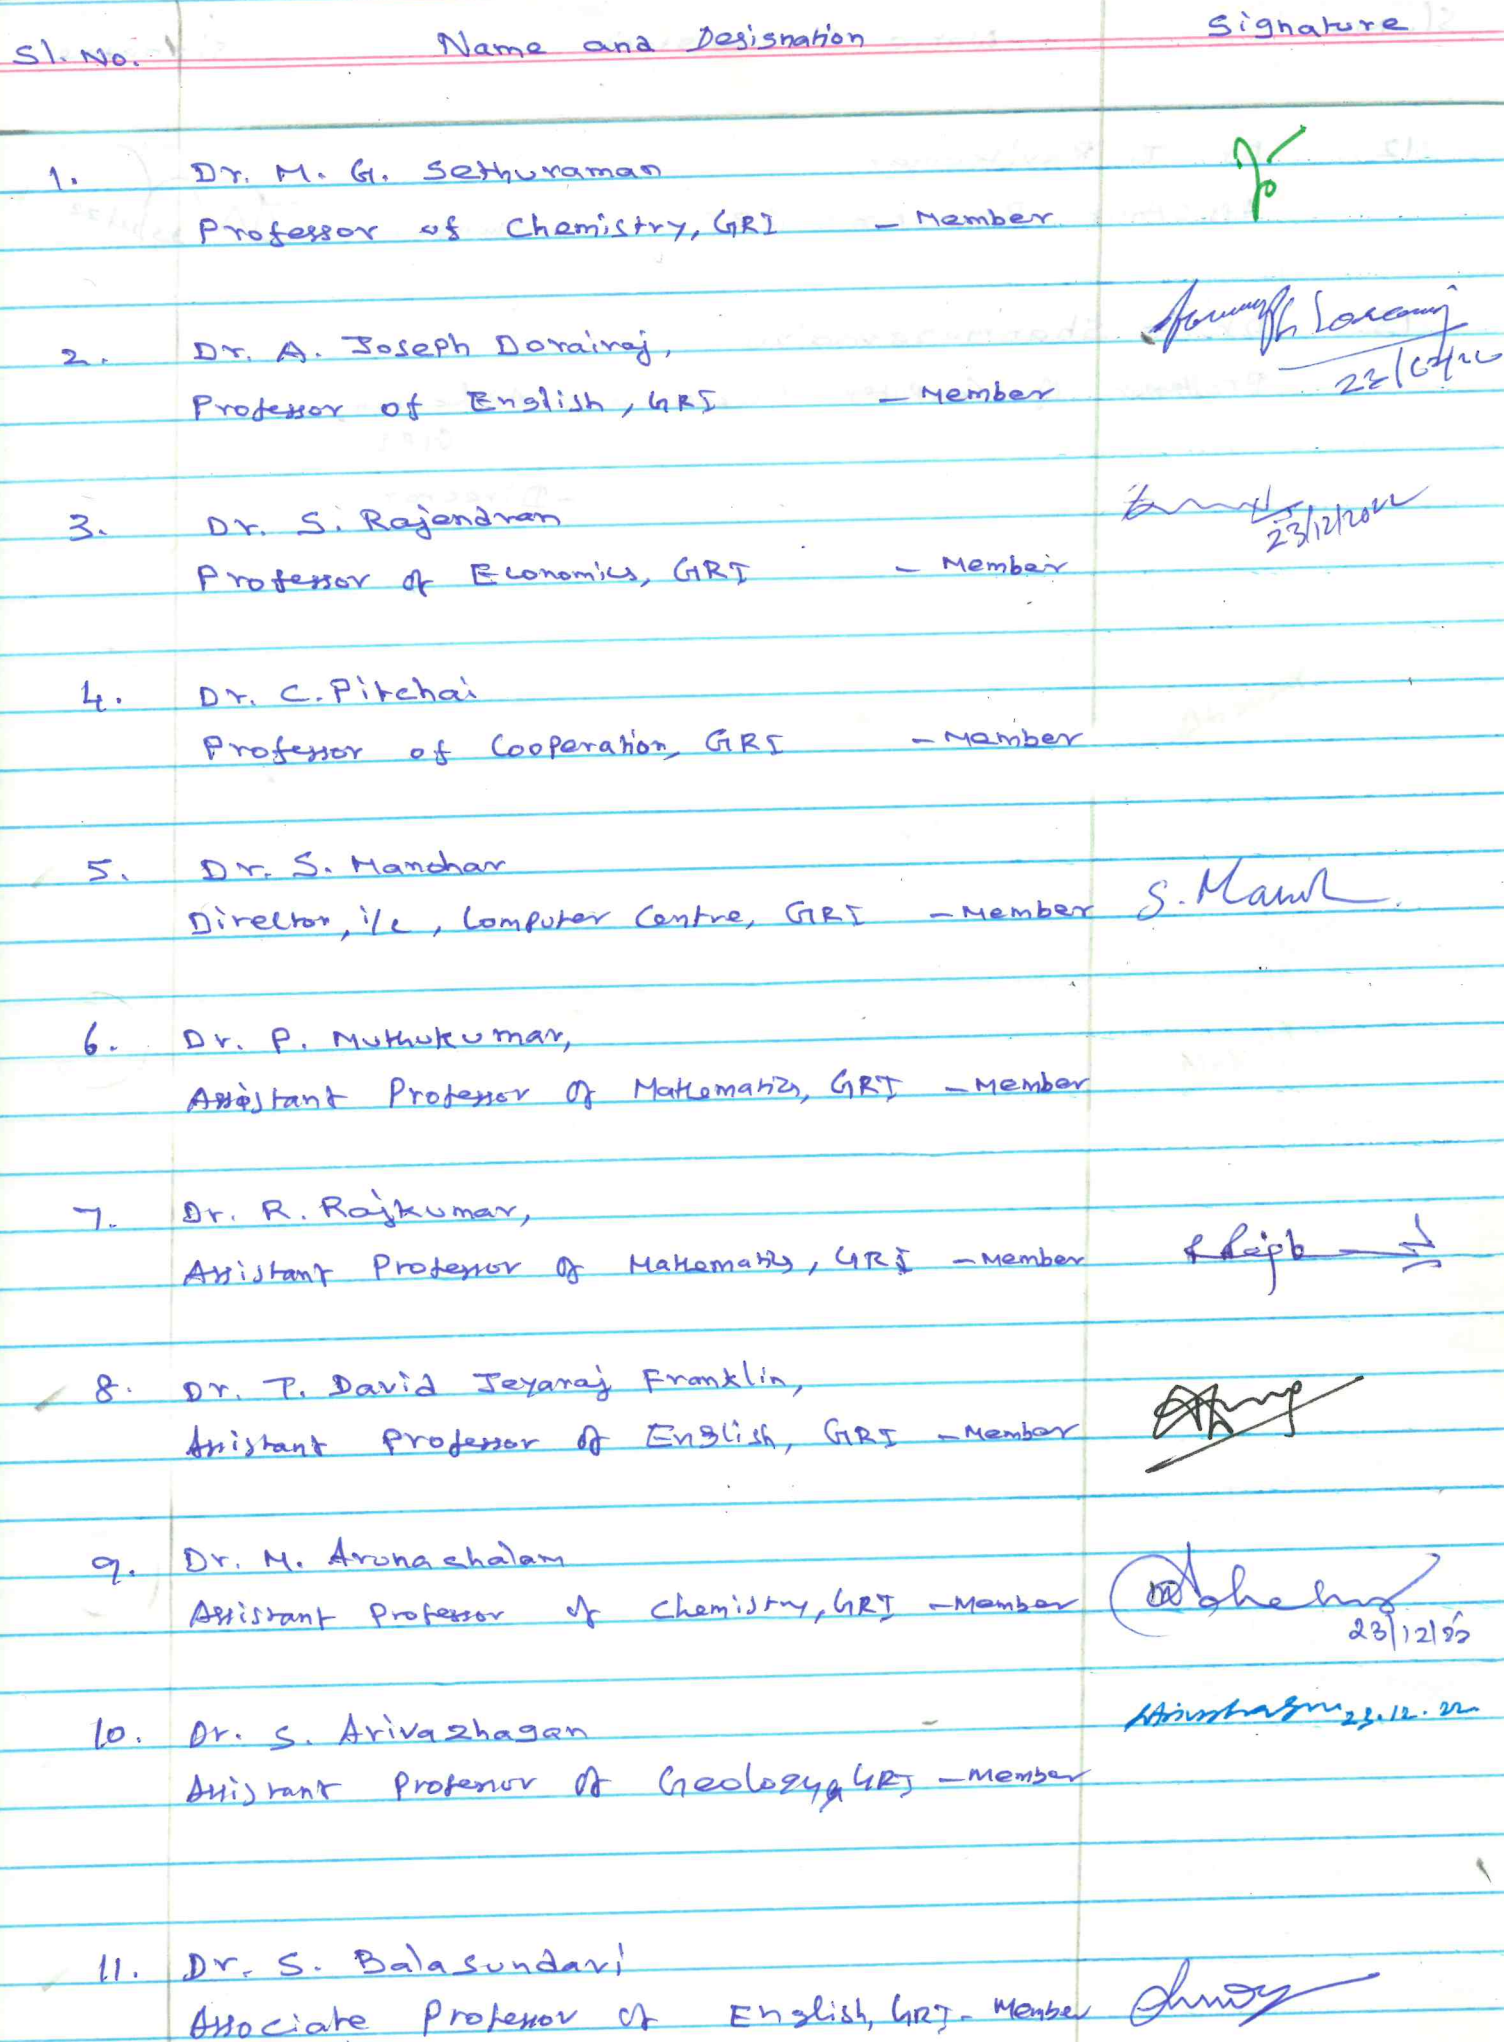 Sl. No. Name and Designation Signature
1. Dr. M. G. Sethuraman
Professor of Chemistry, GRI - Member
2. Dr. A. Joseph Dorairaj,
Professor of English, GRI - Member
3. Dr. S. Rajendran 23/12/2022
Professor of Economics, GRI - Member
4. Dr. C. Pitchai
Professor of Cooperation, GRI - Member
5. Dr. S. Manohar
Director, i/c, Computer Centre, GRI - Member S. Manoh
6. Dr. P. Muthukumar,
Assistant Professor of Mathematics, GRI - Member
7. Dr. R. Rajkumar,
Assistant Professor of Mathematics, GRI - Member
8. Dr. P. David Jeyaraj Franklin,
Assistant Professor of English, GRI - Member
9. Dr. M. Arunachalam
Assistant Professor of Chemistry, GRI - Member
23/12/22
10. Dr. S. Arivazhagan 23.12.22
Assistant Professor of Geology, GRI - Member
11. Dr. S. Balasundari
Associate Professor of English, GRI - Member